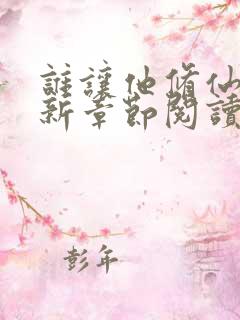 誰讓他脩仙
新章節閱讀
彭年